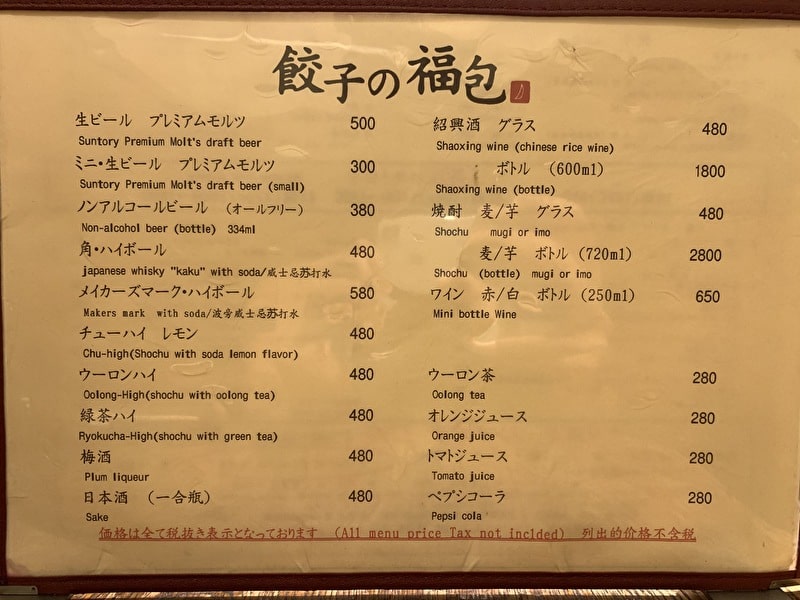 餃子の福包
生ビール プレミアムモルツ 500
Suntory Premium Molt's draft beer
ミニ・生ビール プレミアムモルツ 300
Suntory Premium Molt's draft beer (small)
ノンアルコールビール (オールフリー) 380
Non-alcohol beer (bottle) 334ml
角・ハイボール 480
japanese whisky "kaku" with soda/威士忌苏打水
メイカーズマーク・ハイボール 580
Makers mark with soda/波旁威士忌苏打水
チューハイ レモン 480
Chu-high(Shochu with soda lemon flavor)
ウーロンハイ 480
Oolong-High(shochu with oolong tea)
緑茶ハイ 480
Ryokucha-High(shochu with green tea)
梅酒 480
Plum liqueur
日本酒 (一合瓶) 480
Sake
紹興酒 グラス 480
Shaoxing wine (chinese rice wine)
ボトル (600ml) 1800
Shaoxing wine (bottle)
焼酎 麦/芋 グラス 480
Shochu mugi or imo
麦/芋 ボトル (720ml) 2800
Shochu (bottle) mugi or imo
ワイン 赤/白 ボトル (250ml) 650
Mini bottle Wine
ウーロン茶 280
Oolong tea
オレンジジュース 280
Orange juice
トマトジュース 280
Tomato juice
ペプシコーラ 280
Pepsi cola
価格は全て税抜き表示となっております (All menu price Tax not inclded) 列出的价格不含税